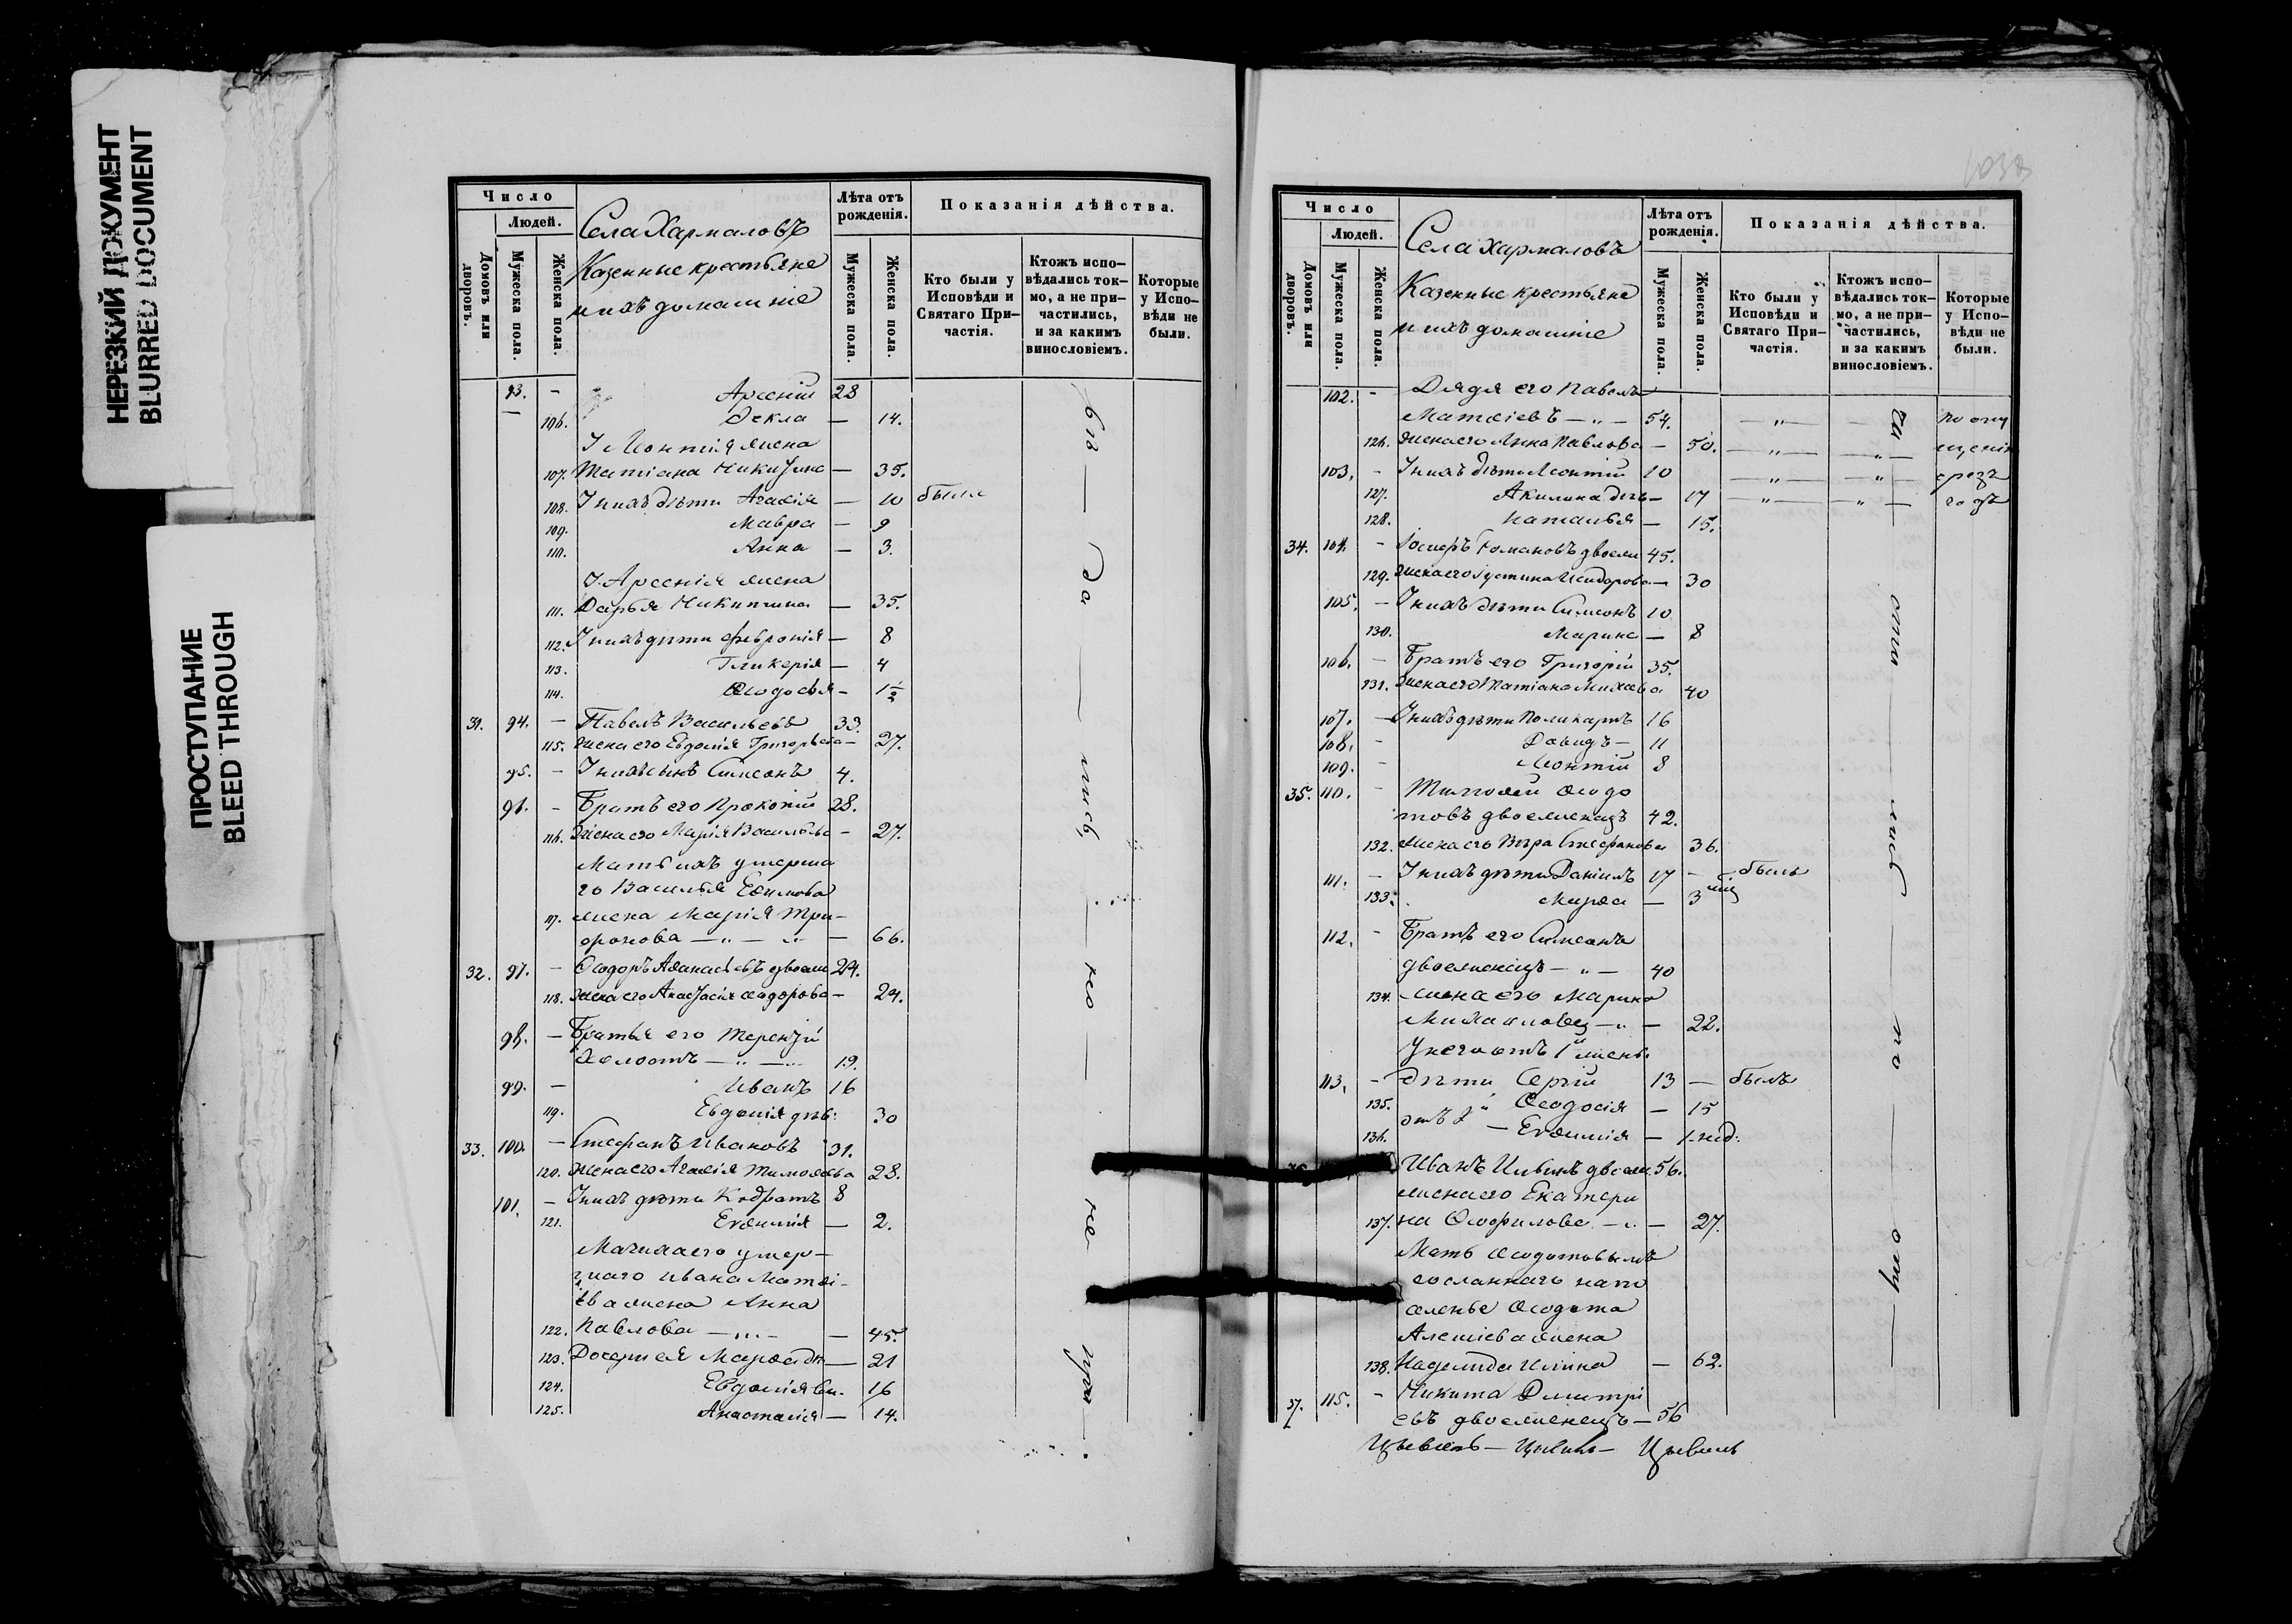 НЕРЕЗКИЙ ДОКУМЕНТ
BLURRED DOCUMENT
ПРОСТУПАНИЕ
BLEED THROUGH
Число
Людей.
Домовъ или дворовъ.
Мужеска пола.
Женска пола.
Села Хармаловъ
Казенные крестьяне
и ихъ домашніе
Лѣта отъ рожденія.
Мужеска пола.
Женска пола.
Показанія дѣйства.
Кто были у Исповѣди и Святаго Причастія.
Ктожъ исповѣдались токмо, а не причастились, и за какимъ винословіемъ.
Которые у Исповѣди не были.
93. - Арсеній 28
106. Фекла — 14.
У Леонтія жена
107. Татіана Никитина — 35.
108. У нихъ дѣти Агафія — 10 была
109. Мавра — 9
110. Анна — 3.
У Арсенія жена
111. Дарья Никитина — 35.
112. У нихъ дѣти Февронія — 8
113. Гликерія — 4
114. Ѳеодосья — 1½
31. 94. — Павелъ Васильевъ 33.
115. Жена его Евдокія Григорьева — 27.
95. — У нихъ сынъ Симеонъ 4.
96. - Братъ его Прокопій 28.
116. Жена его Марія Васильева — 27.
Мать ихъ умерша
го Василья Ефимова
117. жена Марія Три-
фонова — „ — „ — 66.
32. 97. — Ѳеодоръ Аѳанасьевъ двоежен 24.
118. Жена его Анастасія Ѳеодорова — 24.
98. — Братья его Терентій
холостъ — „ — 19.
99. — Иванъ 16
119. Евдокія дѣв: 30
33. 100. — Стефанъ Ивановъ 31.
120. Жена его Агафія Тимоѳеева 28.
101. — У нихъ дѣти Кодратъ 8
121. Евѳимія — 2.
Мачиха его умер-
шаго Ивана Матѳі-
ева жена Анна
122. Павлова — „ — 45.
123. Дочери ея Марѳа дѣ — 21
124. Евдокія 16
125. Анастасія — 14.
Число
Людей.
Домовъ или дворовъ.
Мужеска пола.
Женска пола.
Села Хармаловъ
Казенные крестьяне
и ихъ домашніе
Лѣта отъ рожденія.
Мужеска пола.
Женска пола.
Показанія дѣйства.
Кто были у Исповѣди и Святаго Причастія.
Ктожъ исповѣдались токмо, а не причастились, и за какимъ винословіемъ.
Которые у Исповѣди не были.
102. - Дядя его Павелъ
Матѳіевъ — „ — 54. — „ — по опу
126. Жена его Анна Павлова — 50. — „ — „ — щенію
103. - У нихъ дѣти Леонтій 10 — „ — „ —
127. Акилина дѣв — 17 — „ — „ — годъ
128. Наталья — 15.
34. 104. - Іосифъ Романовъ двоежен 45.
129. Жена его Устина Исидорова — 30
105. — У нихъ дѣти Симеонъ 10
130. Марина — 8
106. — Братъ его Григорій 35.
131. Жена его Татіана 40
107. — У нихъ дѣти Поликарпъ 16
108. - Давидъ — 11
109. - Леонтій 8
35. 110. - Тимоѳей Ѳеодо
товъ двоеженецъ 42.
132. жена его Вѣра Стефанова 36.
111. — У нихъ дѣти Даніилъ 17 — былъ
133. Марѳа — 3
112. - Братъ его Симеонъ
двоеженецъ — „ — 40
134. жена его Марина
Михаилова — „ — 22.
У него отъ 1й жены
113. - дѣти Сергій 13 — былъ
135. Ѳеодосія — 15
136. отъ 2й — Евѳимія — 1 нед:
Иванъ двоежен 56.
жена его Екатери
137. на Ѳеофилова — „ — 27.
Мать Ѳеодотовымъ
сосланнаго на по
селенье Ѳеодота
Алексіева жена
138. Надежда Ильина — 62.
37. 115. - Никита Димитрі
евъ двоеженецъ — 56